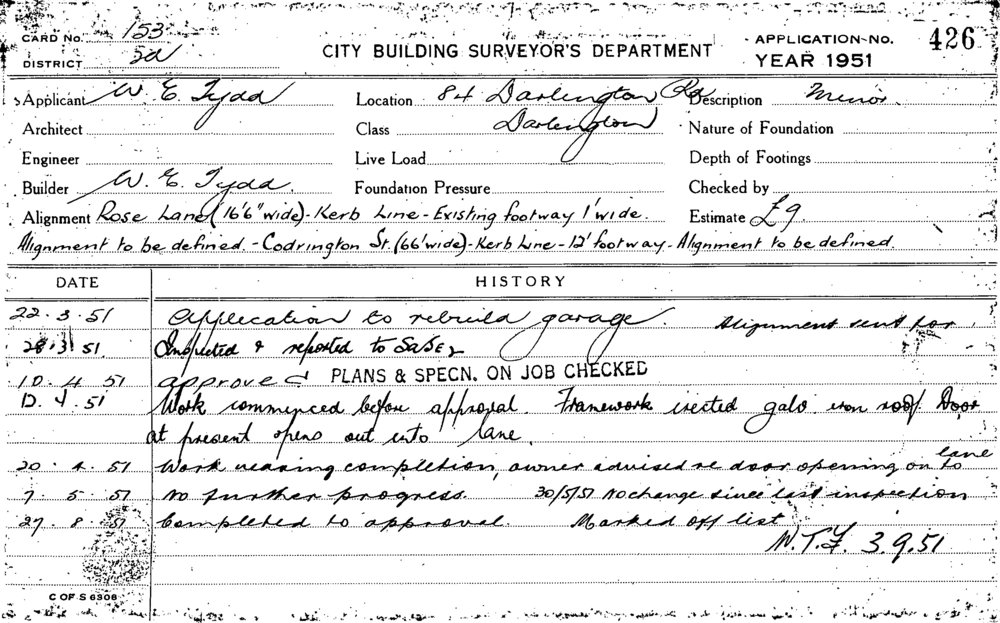 CARD No. 153
DISTRICT 2a
CITY BUILDING SURVEYOR'S DEPARTMENT
APPLICATION No. 426
YEAR 1951
Applicant W. E. Tydd Location 84 Darlington Rd Description Minor.
Architect Class Darlington Nature of Foundation
Engineer Live Load Depth of Footings
Builder W. E. Tydd. Foundation Pressure Checked by
Alignment Rose Lane (16'6" wide) - Kerb Line - Existing footway 1' wide. Estimate £9
Alignment to be defined. - Codrington St. (66' wide) - Kerb Line - 12' footway - Alignment to be defined.
DATE HISTORY
22.3.51 Application to rebuild garage. Alignment sent for
28.3.51 Inspected & reported to
10.4.51 approved PLANS & SPECN. ON JOB CHECKED
12.4.51 Work commenced before approval. Framework erected galv iron roof. Door
at present opens out into lane.
20.4.51 Work nearing completion, owner advised re door opening on to lane
7.5.51 No further progress. 30/5/51 No change since last inspection
27.8.51 Completed to approval. Marked off list
W.T.F. 3.9.51
C OF S 6306